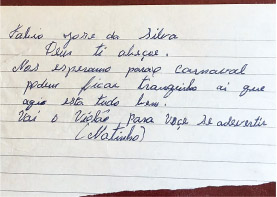 Fabio Jose da Silva
Deus ti abeçoe.
Nos esperamo para o carnaval
podem ficar tranquilo ai que
aqio esta tudo bem.
Vai o Violão para Voçe se adevertir
(Matinho)